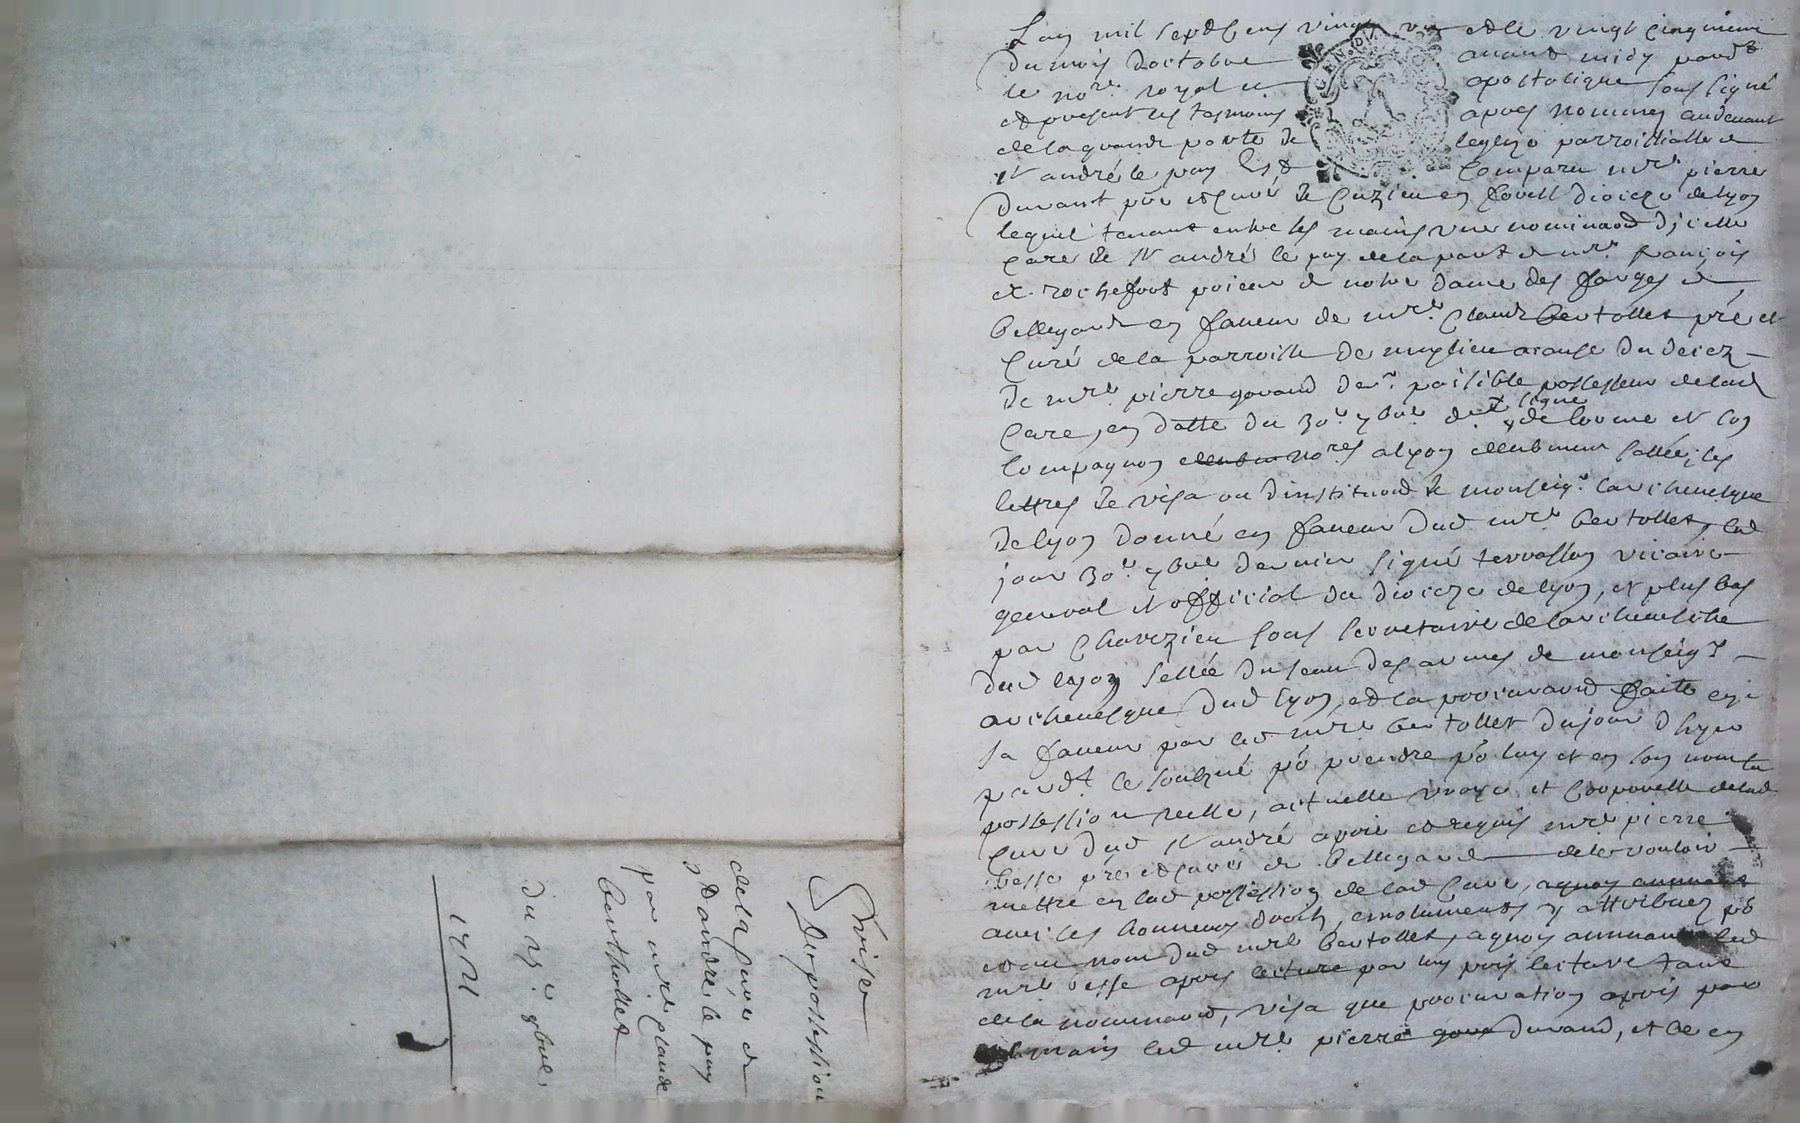 L'an mil sept cens vingt un et le vingt cinquieme
du mois d'octobre avant midy pard.t
le no.re royal et apostolique soussigné
et present les tesmoins apres nommez audevant
de la grande porte de leglize parroissialle de
s.t andré le puy Est comparu m.re pierre
durant p.re et curé de Cuzieu en forest dioceze de lyon
lequel tenant entre les mains une nominaon d'icelle
cure de s.t andré le puy de la part de m.re françois
de rochefort prieur de notre dame des farges de
bellegarde en faveur de m.re Claude bertollet p.re et
curé de la parroisse de acause du decez
de m.re pierre govand der. paisible possesseur de lad
Cure, en datte du 30.e 7bre der. signé delorme et son
compagnon no.res alyon scellée, les
lettres de visa ou dinstituon de monseig.r larchevesque
de lyon donné en faveur dud m.re bertollet, led
jour 30.e 7bre dernier signé terrasson vicaire
general et official du dioceze de lyon, et plus bas
par Charezieu sous secretaire de larchevesche
dud lyon scellée du seau des armes de monseig.r
archevesque dud lyon, et la procuraon faite en
sa faveur par led m.re bertollet du jour dhyer
pard.t le soubzné po prendre po luy et en son nom la
possession reelle, actuelle vraye et corporelle de lad
Cure dud s.t andré a prié et requis m.re pierre
besse p.re et curé de bellegarde de le vouloir
mettre en lad possession de lad Cure, aquoy annuant
avec les honneurs droits, emoluments y attribuez po
et au nom dud m.re bertollet, aquoy annuant led
m.re besse apres lecture par luy pris lecture tant
de la nominaon, visa que procuration apris par
la main led m.re pierre durand, et le en
Prise
de possession
de la cure de
s.t andré le puy
par m.re claude
berthollet
du 25.e 8bre
1721